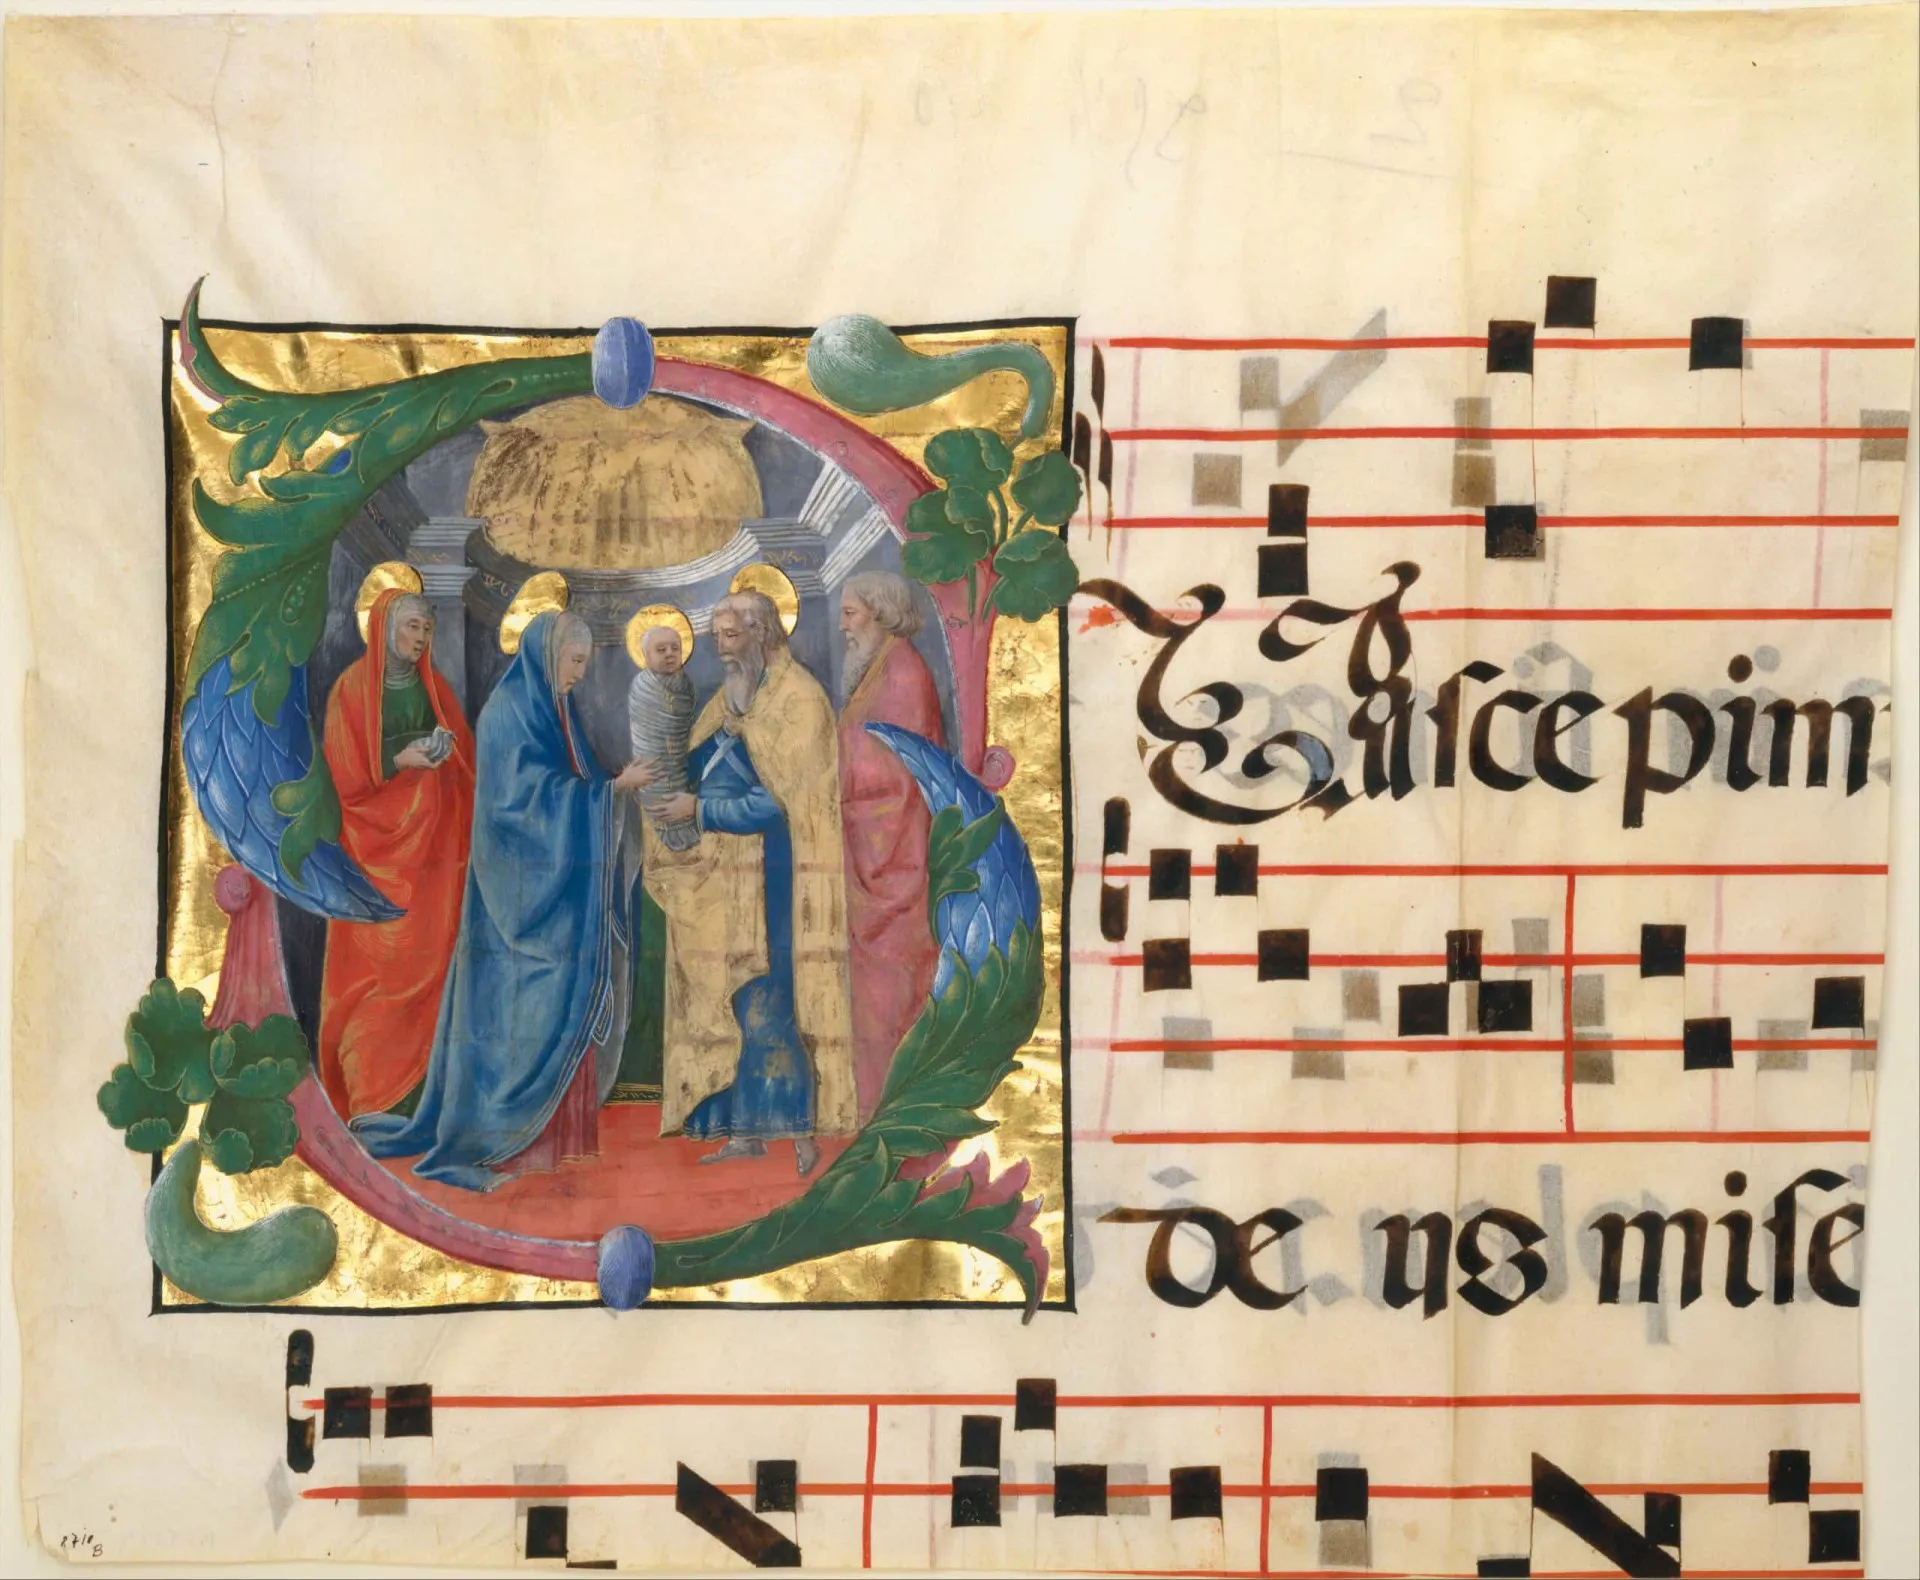 Suscepim
de us mise